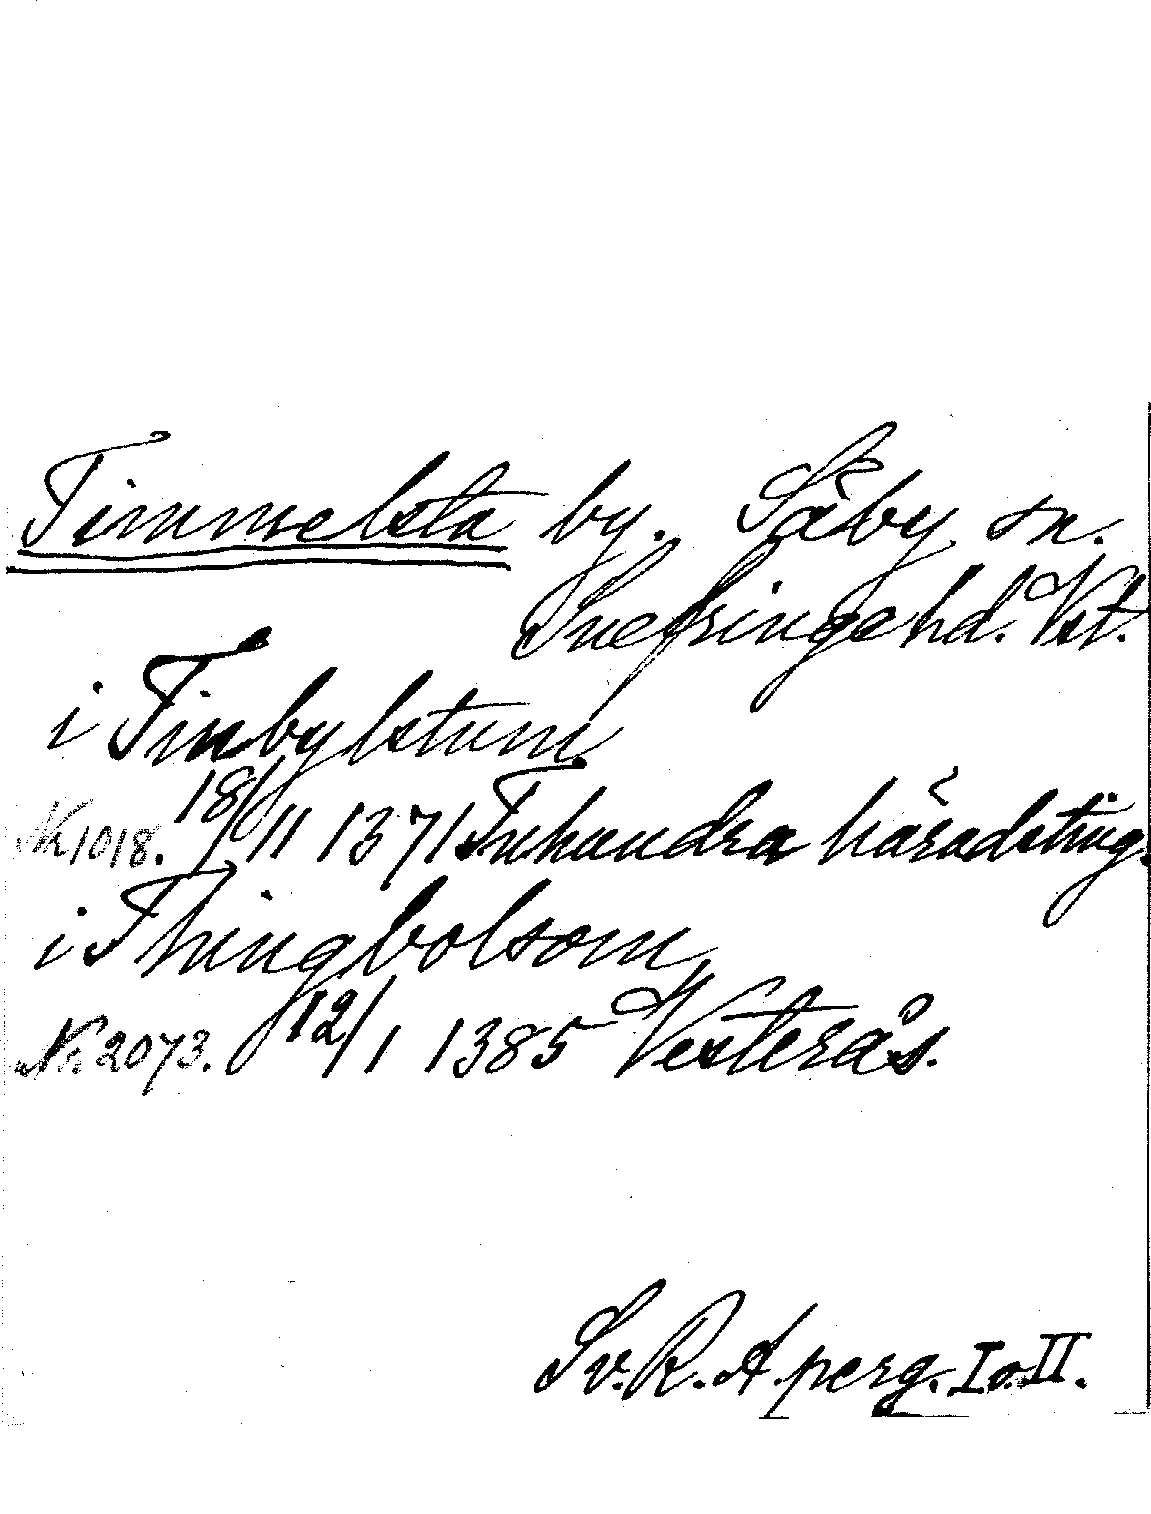 Timmelsta by. Säby sn.
Snefringe hd. Vst.
i Tinbylstum
Nr 1018. 18/11 1371 Tuhundra häradsting.
i Thingbolsom
Nr. 2073. 12/1 1385 Vesterås.
Sv. R. A. perg. I o. II.